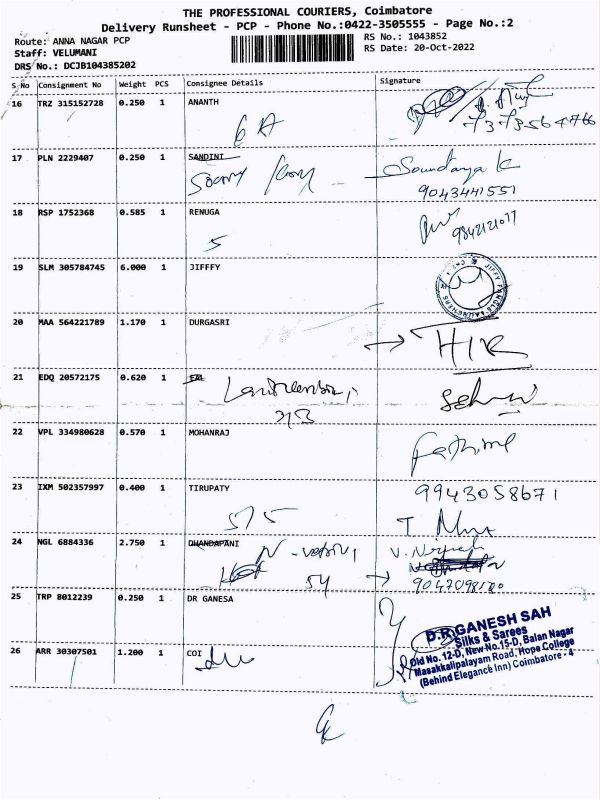 THE PROFESSIONAL COURIERS, Coimbatore
Delivery Runsheet - PCP - Phone No.:0422-3505555 - Page No.:2
Route: ANNA NAGAR PCP
Staff: VELUMANI
DRS No.: DCJB104385202
RS No.: 1043852
RS Date: 20-Oct-2022
S No Consignment No Weight PCS Consignee Details Signature
16 TRZ 315152728 0.250 1 ANANTH
6 A
7373564766
17 PLN 2229407 0.250 1 SANDINI
Soundarya K
9043441551
18 RSP 1752368 0.585 1 RENUGA
5
9842121077
19 SLM 305784745 6.000 1 JIFFFY
20 MAA 564221789 1.170 1 DURGASRI
21 EDQ 20572175 0.620 1
22 VPL 334980628 0.570 1 MOHANRAJ
23 IXM 502357997 0.400 1 TIRUPATY
9943058671
575
24 NGL 6884336 2.750 1 DHANDAPANI
54
25 TRP 8012239 0.250 1 DR GANESA
D.R.GANESH SAH
Silks & Sarees
Old No. 12-D, New No.15-D, Balan Nagar
Masakkalipalayam Road, Hope College
(Behind Elegance Inn) Coimbatore - 4
26 ARR 30307501 1.200 1 COI